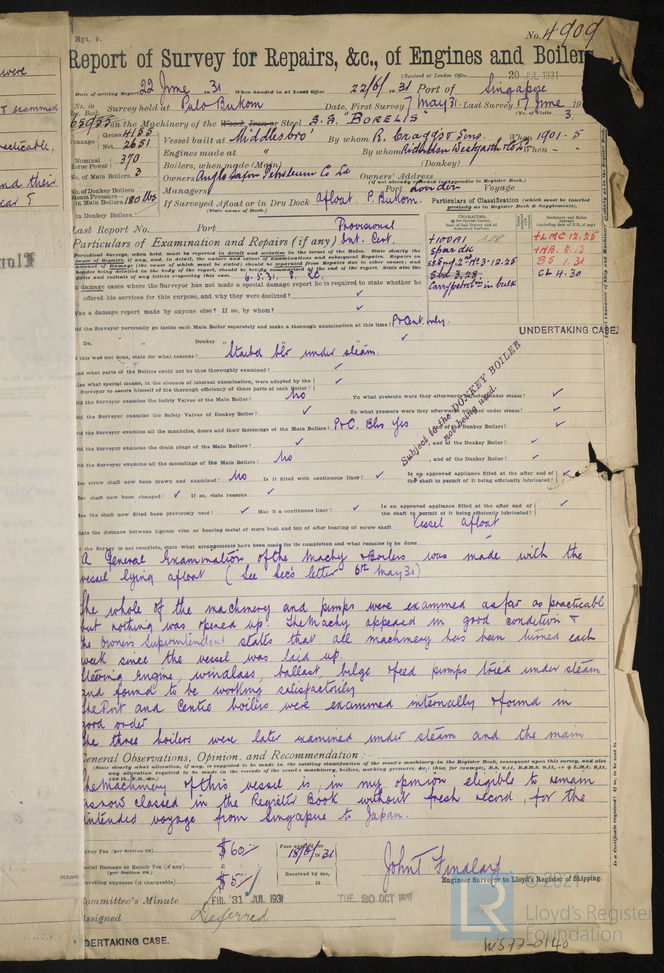 Rpt. 9.
No. 4909
Report of Survey for Repairs, &c., of Engines and Boilers
(Received at London Office 20 JUL 1931
Date of writing Report 22 June 1931 When handed in at Local Office 22/6/1931 Port of Singapore
No. in Survey held at Pulo Bukom Date, First Survey 7 May 31 Last Survey 17 June 19
Reg. Book. (No. of Visits 3
on the Machinery of the Wood, Iron or Steel S.S. "BORELIS"
Tonnage Gross 4155 Net 2651 Vessel built at Middlesbro' By whom R. Craggs & Sons When 1901-5
Nominal Horse Power 370 Engines made at " By whom Richardson Westgarth & Co Ld When -
No. of Main Boilers 3 Boilers, when made (Main) (Donkey)
No. of Donkey Boilers Owners Anglo Saxon Petroleum Co Ld Owners' Address
(if not already recorded in Appendix to Register Book.)
Steam Pressure in Main Boilers 180 lbs Managers Port London Voyage
in Donkey Boilers If Surveyed Afloat or in Dry Dock afloat P. Bukom.
(State name of Dock.)
Particulars of Classification (which must be inserted precisely as in Register Book & Supplements).
Last Report No. Port Provisional
Particulars of Examination and Repairs (if any) Int. Cert.
+100A1
Spar dk
Carry petrolm in bulk
+LMC 12.25
BS 1.31
CL 4.30
In damage cases where the Surveyor has not made a special damage report he is required to state whether he
offered his services for this purpose, and why they were declined?
Was a damage report made by anyone else? If so, by whom?
Did the Surveyor personally go inside each Main Boiler separately and make a thorough examination at this time? P & Cent. only.
Do. " Donkey "
UNDERTAKING CASE.
If this was not done, state for what reasons? Starbd blr under steam.
And what parts of the Boilers could not be thus thoroughly examined?
Also what special means, in the absence of internal examination, were adopted by the
Surveyor to assure himself of the thorough efficiency of those parts of each Boiler?
Did the Surveyor examine the Safety Valves of the Main Boiler? No To what pressure were they afterwards adjusted under steam?
Did the Surveyor examine the Safety Valves of Donkey Boiler? To what pressure were they afterwards adjusted under steam?
Did the Surveyor examine all the manholes, doors and their fastenings of the Main Boilers? P & C. Blrs Yes , and of the Donkey Boiler?
Did the Surveyor examine the drain plugs of the Main Boilers? , and of the Donkey Boiler?
Did the Surveyor examine all the mountings of the Main Boilers? No , and of the Donkey Boiler?
Subject to the DONKEY BOILER
not being used.
Has screw shaft now been drawn and examined? No Is it fitted with continuous liner? Is an approved appliance fitted at the after end of
the shaft to permit of it being efficiently lubricated?
Has shaft now been changed? If so, state reasons
Has the shaft now fitted been previously used? Has it a continuous liner? Is an approved appliance fitted at the after end of
the shaft to permit of it being efficiently lubricated?
State the distance between lignum vitæ or bearing metal of stern bush and top of after bearing of screw shaft Vessel afloat
If the Survey is not complete, state what arrangements have been made for its completion and what remains to be done
A General Examination of the Machy & Boilers was made with the
vessel lying afloat (See Sec's letter 6th May 31).
The whole of the machinery and pumps were examined as far as practicable
but nothing was opened up. The Machy appeared in good condition &
the owners Superintendent states that all machinery has been turned each
week since the vessel was laid up.
Steering Engine, windlass, ballast bilge & feed pumps tried under steam
and found to be working satisfactorily
The Port and Centre boilers were examined internally & found in
good order
The three boilers were later examined under steam and the main
General Observations, Opinion, and Recommendation:—
The Machinery of this vessel is, in my opinion eligible to remain
as now classed in the Register Book without fresh record, for the
intended voyage from Singapore to Japan.
Survey Fee (per Section 29) $60:-
Special Damage or Repair Fee (if any)
(per Section 29)
Travelling expenses (if chargeable) $5:-
Fees applied for 18/6/1931
Received by me,
19
John T Findlay
Engineer Surveyor to Lloyd's Register of Shipping.
Committee's Minute FRI. 31 JUL 1931 TUE. 20 OCT 1931
Assigned Deferred
UNDERTAKING CASE.
© 2021
LR
Lloyd's Register
Foundation
W577-0140